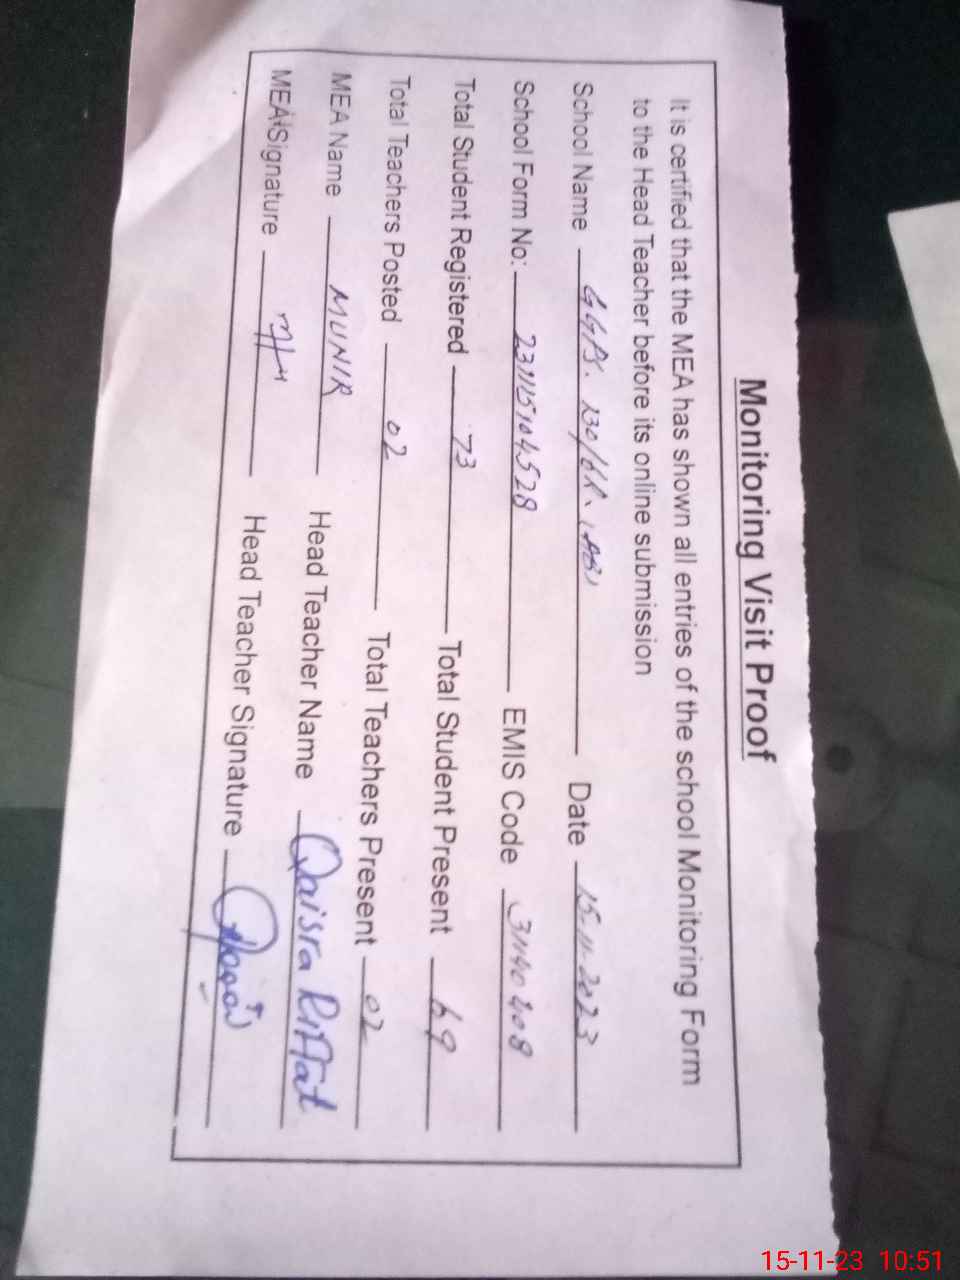 Monitoring Visit Proof
It is certified that the MEA has shown all entries of the school Monitoring Form
to the Head Teacher before its online submission
School Name GGPS. 130/6R. Date 15-11-2023
School Form No: EMIS Code 31140408
Total Student Registered 73 Total Student Present 69
Total Teachers Posted 02 Total Teachers Present 02
MEA Name MUNIR Head Teacher Name Qaisra Riffat
MEA Signature Head Teacher Signature
15-11-23 10:51